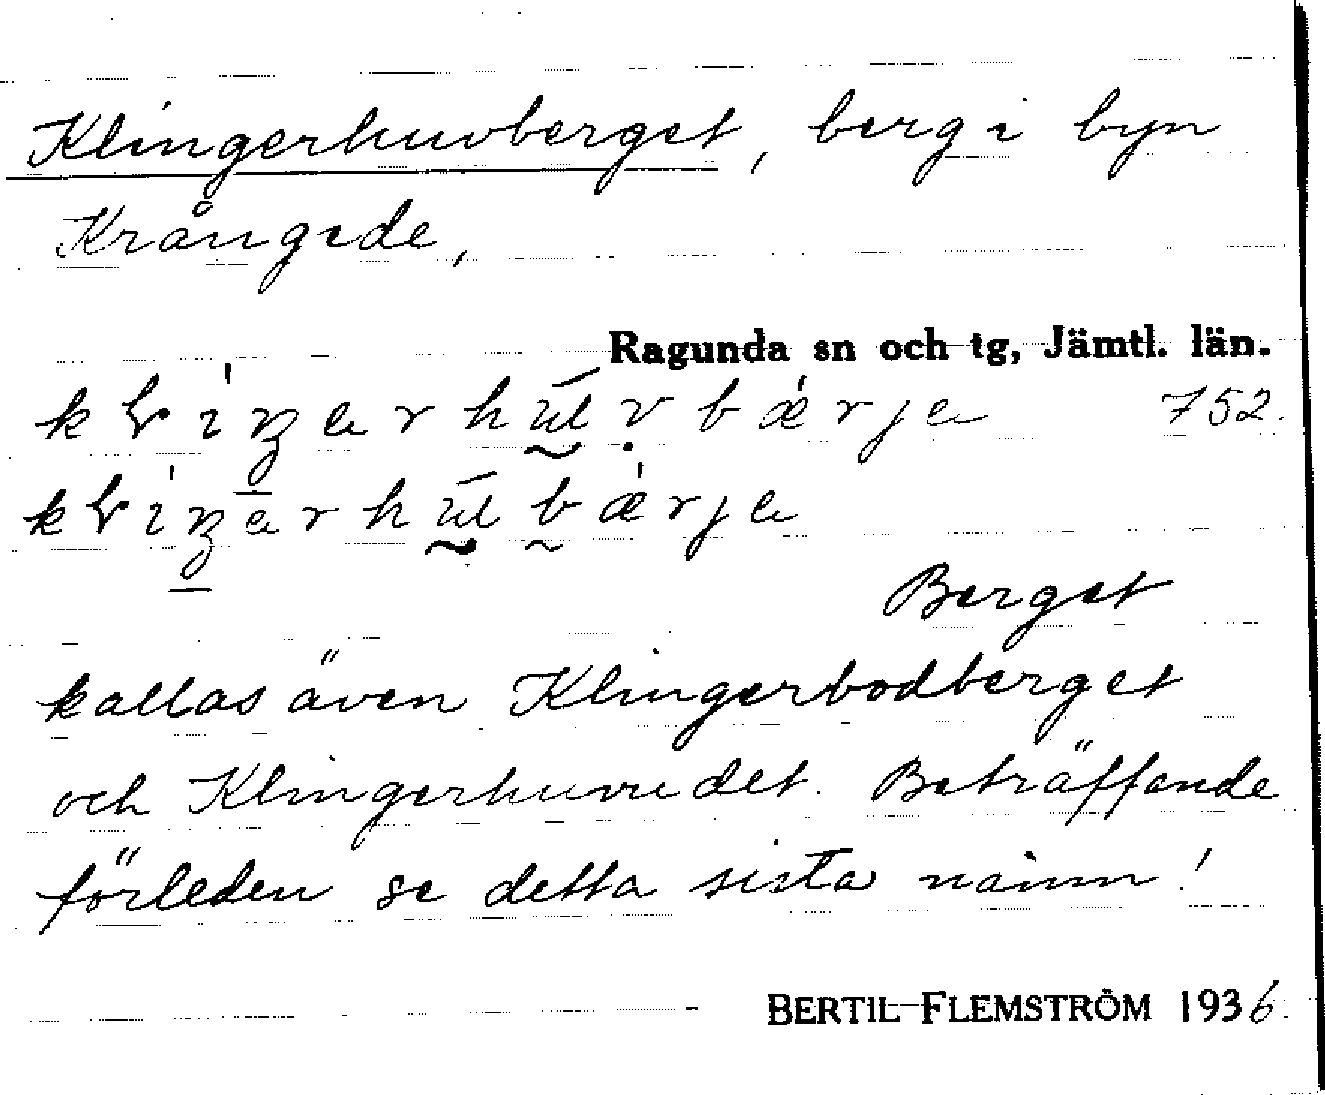 Klingerhuvberget, berg i byn
Krångede,
Ragunda sn och tg, Jämtl. län.
752.
Berget
kallas även Klingerbodberget
och Klingerhuvudet. Beträffande
förleden se detta sista namn!
BERTIL FLEMSTRÖM 1936.